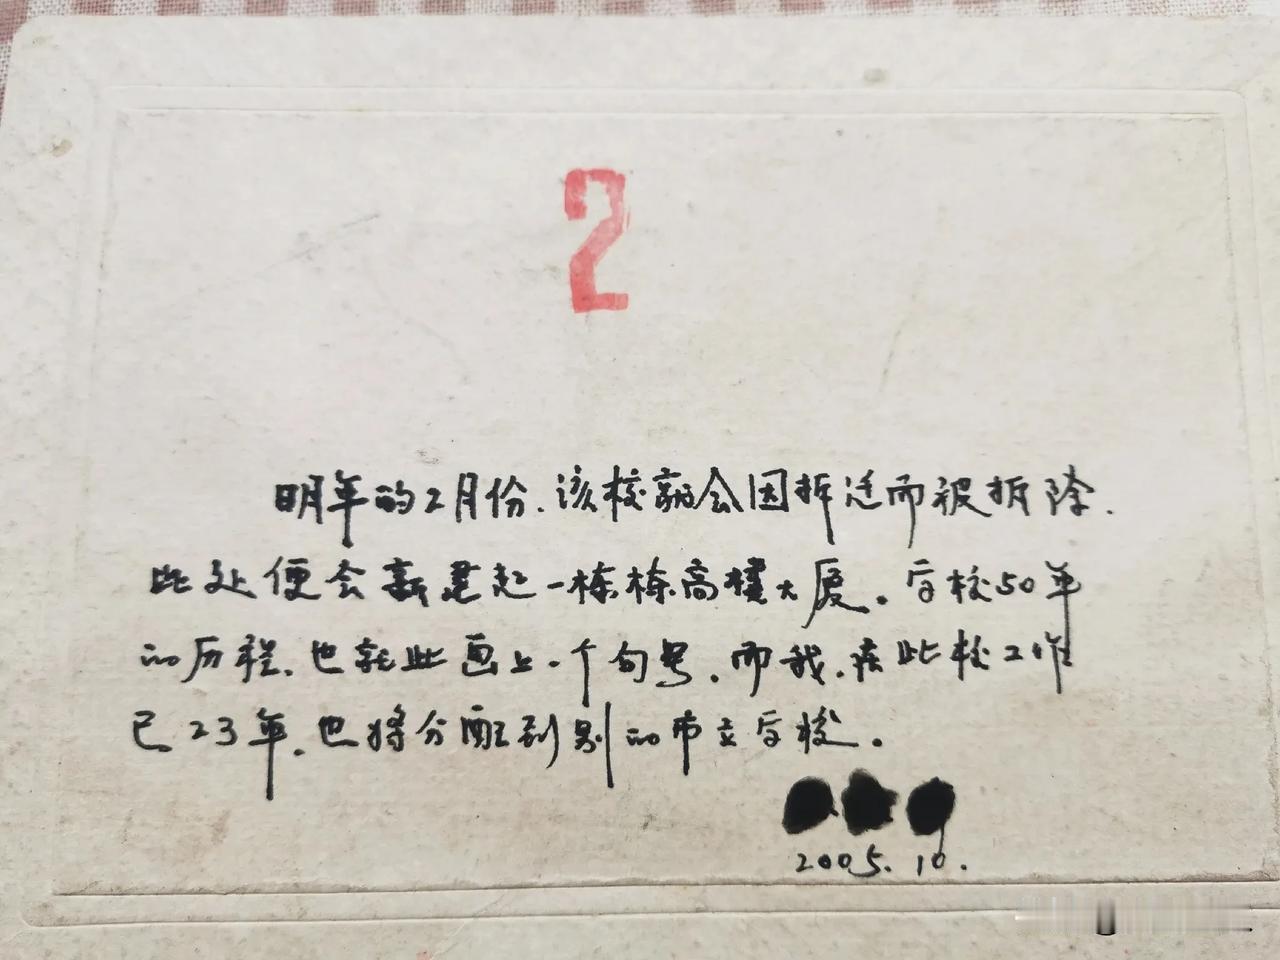 2
明年的2月份.该校就会因拆迁而被拆除.
此处便会新建起一栋栋高楼大厦。学校50年
的历程.也就此画上一个句号.而我.在此校工作
已23年.也将分配到别的市立学校。
2005.10.